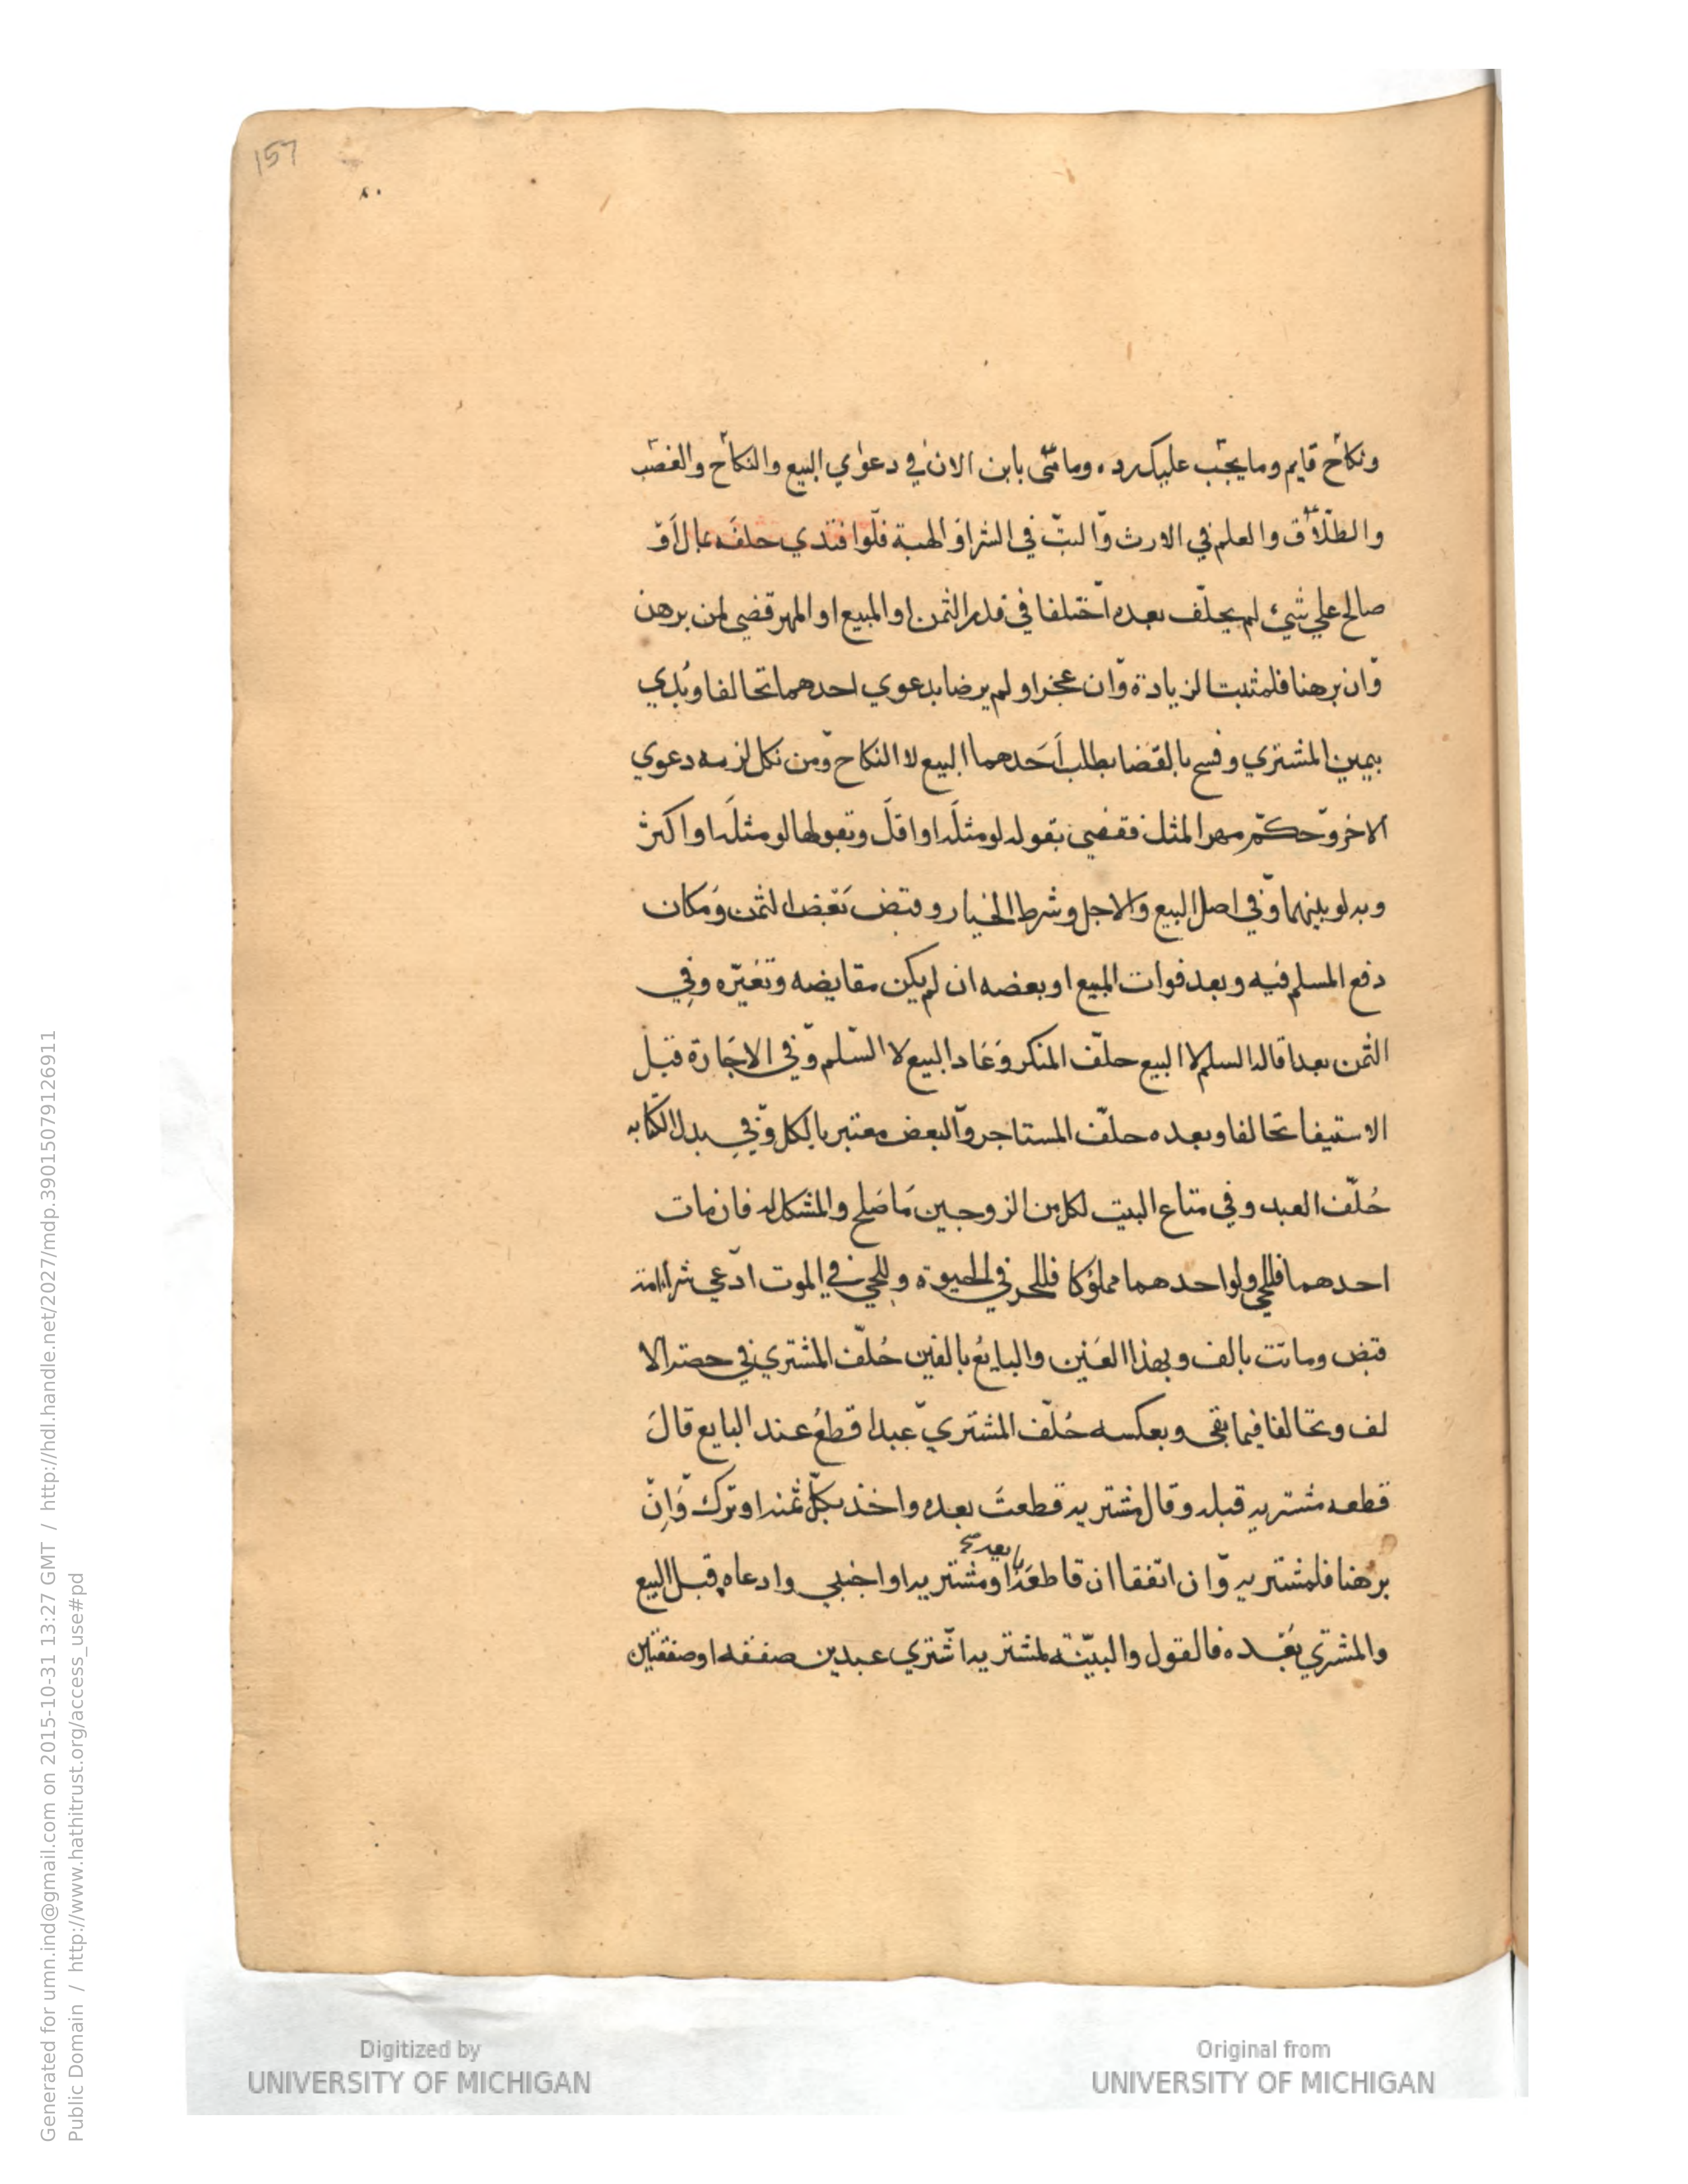 157
ونكاح قايم وما يجب عليك رده وما هي باين الان في دعواي البيع والنكاح والغصب
والطلاق والعلم في الارث والبت في الشرا والهبة فلوا فتدي حلفه بمال او
صالح علي شيء لم يحلف بعده اختلفا في قدر الثمن او المبيع او المهر قضي لمن برهن
وان برهنا فلمثبت الزيادة وان عجزا ولم يرضا بدعوي احدهما تحالفا وبُدي
بيمين المشتري وفسخ بالقضا بطلب احدهما البيع لا النكاح ومن نكل لزمه دعوي
الاخر وحكم مهر المثل فقضي بقوله لو مثله او اقل وتقولها لو مثله او اكثر
وبه لو بينهما وفي اصل البيع والاجل وشرط الخيار وقبض بعض الثمن ومكان
دفع المسلم فيه وبعد فوات المبيع او بعضه ان لم يكن مقايضه وتغيّره وفي
الثمن بعد اقاله السلم لا البيع حلّف المنكر وعاد البيع لا السّلم وفي الاجارة قبل
الاستيفا تحالفا وبعده حلّف المستاجر والبعض معتبر بالكل وفي بدل الكتابه
حُلّف العبد وفي متاع البيت لكل من الزوجين ما صلح والمشكل له فان مات
احدهما فللحي ولو احدهما مملوكا فللحر في الحيوة وللحي في الموت ادعي شرا امة
قبض وماتت بالف وبهذا العين والبايع بالفين حُلّف المشتري في حصة الا
لف وتحالفا فيما بقي وبعكسه حُلّف المشتري عبدا قطع عند البايع قال
قطعه مشتريه قبله وقال مشتريه قطعت بعده واخذ بكل ثمنه او ترك وان
بعد صح
برهنا فلمشتريه وان اتفقا ان قاطعه او مشتريه او اجنبي وادعاه قبل البيع
والمشتري بعده فالقول والبيّنة لمشتريه اشتري عبدين صفقه او صفقتين
Generated for umn.ind@gmail.com on 2015-10-31 13:27 GMT / http://hdl.handle.net/2027/mdp.39015079126911
Public Domain / http://www.hathitrust.org/access_use#pd
Digitized by
UNIVERSITY OF MICHIGAN
Original from
UNIVERSITY OF MICHIGAN